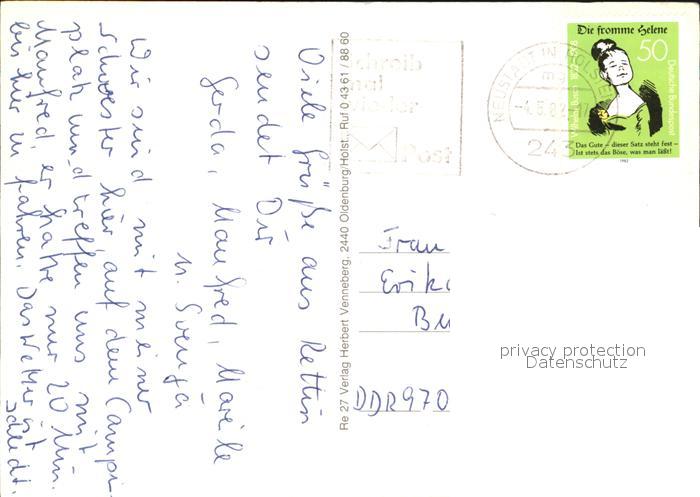 Viele Grüße aus Rettin
sendet Dir
Gerda, Manfred, Mareile
u. Svenja
Wir sind mit meiner
Schwester hier auf dem Campi-
platz und treffen uns mit
Manfred, er hatte nur 20 Min.
bis hier zu fahren. Das Wetter ist
schlecht.
Re 27 Verlag Herbert Venneberg, 2440 Oldenburg/Holst. Ruf 0 43 61 / 88 60
Schreib
mal
wieder
Post
NEUSTADT IN HOLSTEIN
243
Die fromme Helene
50
Deutsche Bundespost
Das Gute – dieser Satz steht fest –
Ist stets das Böse, was man läßt!
1982
Frau
Erika
Bu
DDR 970
privacy protection
Datenschutz